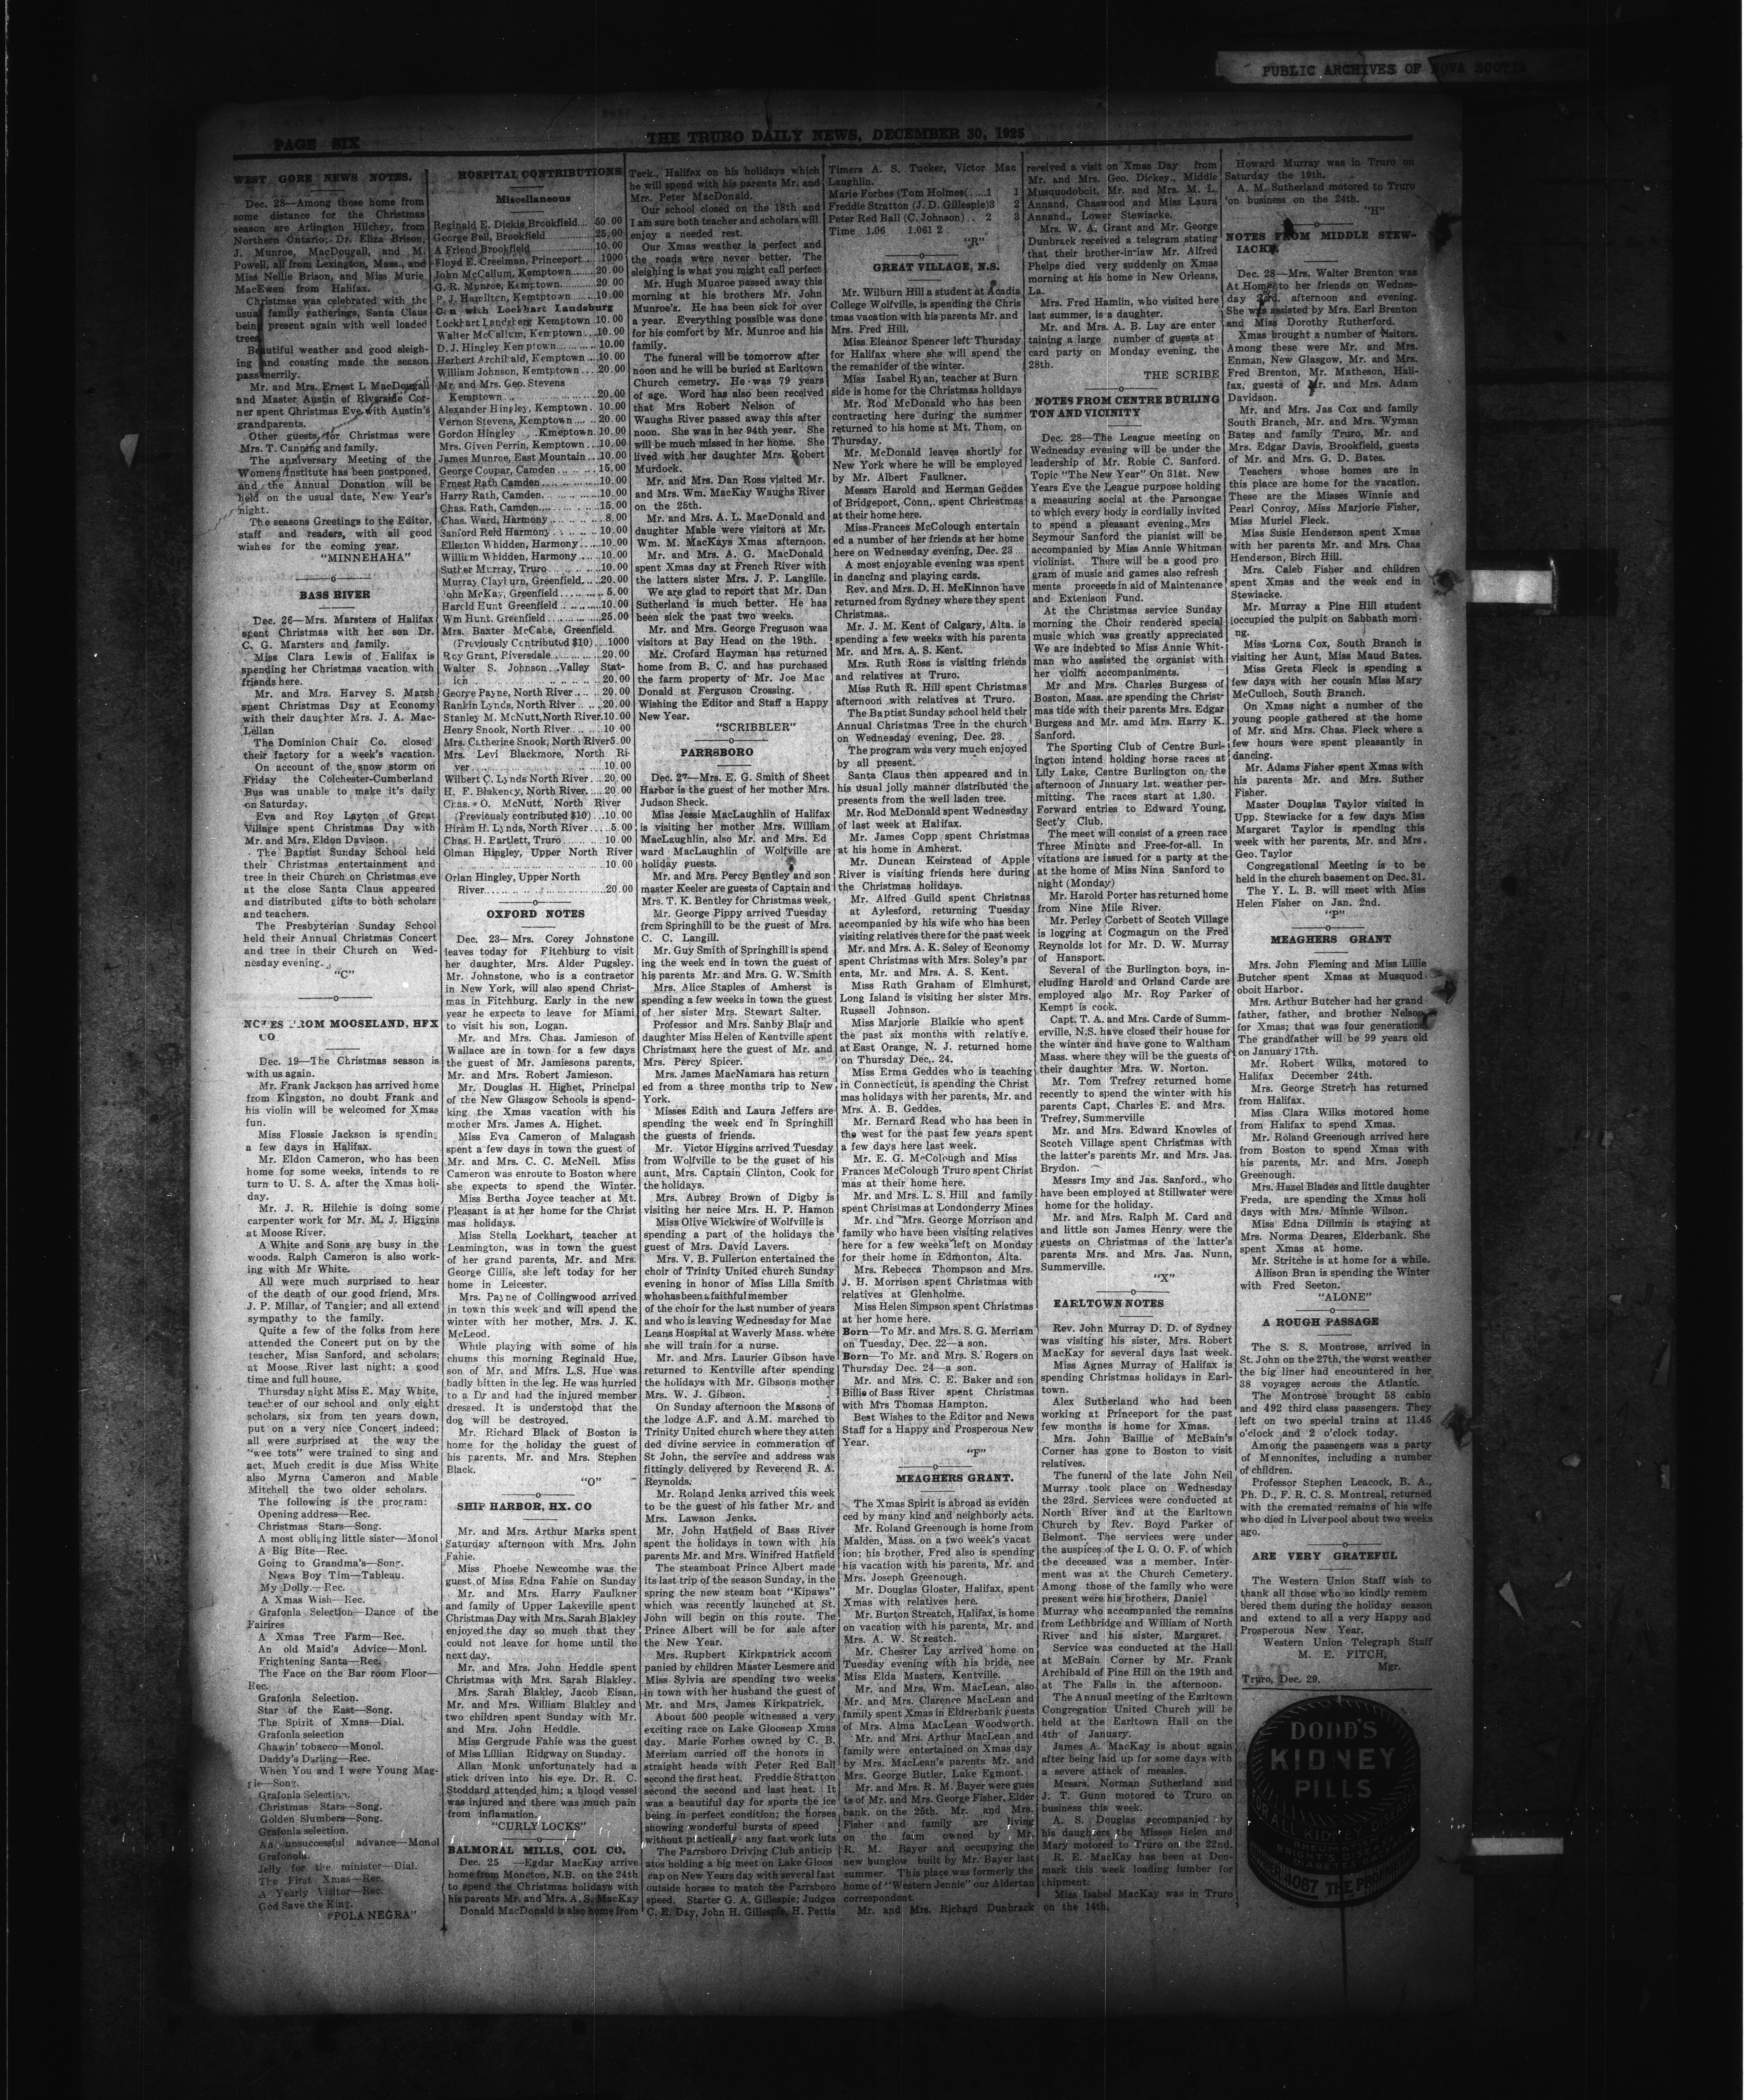 PUBLIC ARCHIVES OF NOVA SCOTIA
PAGE SIX
THE TRURO DAILY NEWS, DECEMBER 30, 1925
WEST GORE NEWS NOTES.
Dec. 28—Among those home from
some distance for the Christmas
season are Arlington Hilchey, from
Northern Ontario; Dr. Eliza Brison,
J. Munroe, MacDougall, and M.
Powell, all from Lexington, Mass., and
Miss Nellie Brison, and Miss Murie
MacEwen from Halifax.
Christmas was celebrated with the
usual family gatherings, Santa Claus
being present again with well loaded
trees.
Beautiful weather and good sleigh-
ing and coasting made the season
pass merrily.
Mr. and Mrs. Ernest L MacDougall
and Master Austin of Riverside Cor-
ner spent Christmas Eve with Austin's
grandparents.
Other guests for Christmas were
Mrs. T. Canning and family.
The anniversary Meeting of the
Womens Institute has been postponed,
and the Annual Donation will be
held on the usual date, New Year's
night.
The seasons Greetings to the Editor,
staff and readers, with all good
wishes for the coming year.
"MINNEHAHA"
BASS RIVER
Dec. 26—Mrs. Marsters of Halifax
spent Christmas with her son Dr.
C. G. Marsters and family.
Miss Clara Lewis of Halifax is
spending her Christmas vacation with
friends here.
Mr. and Mrs. Harvey S. Marsh
spent Christmas Day at Economy
with their daughter Mrs. J. A. Mac-
Lellan
The Dominion Chair Co. closed
their factory for a week's vacation.
On account of the snow storm on
Friday the Colchester-Cumberland
Bus was unable to make it's daily
on Saturday.
Eva and Roy Layton of Great
Village spent Christmas Day with
Mr. and Mrs. Eldon Davison.
The Baptist Sunday School held
their Christmas entertainment and
tree in their Church on Christmas eve
at the close Santa Claus appeared
and distributed gifts to both scholars
and teachers.
The Presbyterian Sunday School
held their Annual Christmas Concert
and tree in their Church on Wed-
nesday evening.
"C"
NOTES FROM MOOSELAND, HFX
CO
Dec. 19—The Christmas season is
with us again.
Mr. Frank Jackson has arrived home
from Kingston, no doubt Frank and
his violin will be welcomed for Xmas
fun.
Miss Flossie Jackson is spending
a few days in Halifax.
Mr. Eldon Cameron, who has been
home for some weeks, intends to re
turn to U. S. A. after the Xmas holi-
day.
Mr. J. R. Hilchie is doing some
carpenter work for Mr. M. J. Higgins
at Moose River.
A White and Sons are busy in the
woods. Ralph Cameron is also work-
ing with Mr White.
All were much surprised to hear
of the death of our good friend, Mrs.
J. P. Millar, of Tangier; and all extend
sympathy to the family.
Quite a few of the folks from here
attended the Concert put on by the
teacher, Miss Sanford, and scholars;
at Moose River last night; a good
time and full house.
Thursday night Miss E. May White,
teacher of our school and only eight
scholars, six from ten years down,
put on a very nice Concert indeed;
all were surprised at the way the
"wee tots" were trained to sing and
act. Much credit is due Miss White
also Myrna Cameron and Mable
Mitchell the two older scholars.
The following is the program:
Opening address—Rec.
Christmas Stars—Song.
A most obliging little sister—Monol
A Big Bite—Rec.
Going to Grandma's—Song.
News Boy Tim—Tableau.
My Dolly.—Rec.
A Xmas Wish—Rec.
Grafonla Selection—Dance of the
Fairires
A Xmas Tree Farm—Rec.
An old Maid's Advice—Monl.
Frightening Santa—Rec.
The Face on the Bar room Floor—
Rec.
Grafonla Selection.
Star of the East—Song.
The Spirit of Xmas—Dial.
Grafonla selection
Chawin' tobacco—Monol.
Daddy's Darling—Rec.
When You and I were Young Mag-
gie—Song.
Grafonla Selection.
Christmas Stars—Song.
Golden Slumbers—Song.
Grafonla selection.
An unsuccessful advance—Monol
Grafonola.
Jelly for the minister—Dial.
The First Xmas—Rec.
A Yearly Visitor—Rec.
God Save the King.
"POLA NEGRA"
HOSPITAL CONTRIBUTIONS
Miscellaneous
Reginald E. Dickie Brookfield.... 50.00
George Bell, Brookfield ......... 25.00
A Friend Brookfield ......... 10.00
Floyd E. Creelman, Princeport... 1000
John McCallum, Kemptown....... 20.00
G. R. Munroe, Kemptown......... 20.00
P. J. Hamilton, Kemtptown .... 10.00
Con with Lockhart Landsburg
Lockhart Landsberg Kemptown 10.00
Walter McCallum, Kemptown.... 10.00
D. J. Hingley Kemptown ........ 10.00
Herbert Archibald, Kemptown ... 10.00
William Johnson, Kemtptown ... 20.00
Mr. and Mrs. Geo. Stevens
Kemptown ................ 20.00
Alexander Hingley, Kemptown . 10.00
Vernon Stevens, Kemptown .... 20.00
Gordon Hingley ... Kmeptown 10.00
Mrs. Given Perrin, Kemptown... 10.00
James Munroe, East Mountain ... 10.00
George Coupar, Camden ........ 15.00
Ernest Rath Camden............ 10.00
Harry Rath, Camden............ 10.00
Chas. Rath, Camden............ 15.00
Chas. Ward, Harmony .......... 8.00
Sanford Reid Harmony .......... 10.00
Ellerton Whidden, Harmony .... 10.00
William Whidden, Harmony .... 10.00
Suther Murray, Truro .......... 10.00
Murray Clayburn, Greenfield..... 20.00
John McKay, Greenfield......... 5.00
Harold Hunt Greenfield ......... 10.00
Wm Hunt. Greenfield........... 25.00
Mrs. Baxter McCabe, Greenfield.
(Previously Contributed $10).. 1000
Roy Grant, Riversdale.......... 20.00
Walter S. Johnson Valley Stat-
ion .................... 20.00
George Payne, North River ..... 20.00
Rankin Lynds, North River..... 20.00
Stanley M. McNutt, North River. 10.00
Henry Snook, North River ..... 10 00
Mrs. Catherine Snook, North River 5.00
Mrs. Levi Blackmore, North Ri-
ver.................... 10.00
Wilbert C. Lynds North River.... 20.00
H. F. Blakency, North River..... 20.00
Chas. O. McNutt, North River
(Previously contributed $10).... 10.00
Hiram H. Lynds, North River.... 5.00
Chas. H. Bartlett, Truro ........ 10 00
Olman Hingley, Upper North River
.................... 10.00
Orlan Hingley, Upper North
River.................... 20.00
OXFORD NOTES
Dec. 23—Mrs. Corey Johnstone
leaves today for Fitchburg to visit
her daughter, Mrs. Alder Pugsley.
Mr. Johnstone, who is a contractor
in New York, will also spend Christ-
mas in Fitchburg. Early in the new
year he expects to leave for Miami
to visit his son, Logan.
Mr. and Mrs. Chas. Jamieson of
Wallace are in town for a few days
the guest of Mr. Jamiesons parents,
Mr. and Mrs. Robert Jamieson.
Mr. Douglas H. Highet, Principal
of the New Glasgow Schools is spend-
king the Xmas vacation with his
mother Mrs. James A. Highet.
Miss Eva Cameron of Malagash
spent a few days in town the guest of
Mr. and Mrs. C. C. McNeil. Miss
Cameron was enroute to Boston where
she expects to spend the Winter.
Miss Bertha Joyce teacher at Mt.
Pleasant is at her home for the Christ
mas holidays.
Miss Stella Lockhart, teacher at
Leamington, was in town the guest
of her grand parents, Mr. and Mrs.
George Gillis, she left today for her
home in Leicester.
Mrs. Payne of Collingwood arrived
in town this week and will spend the
winter with her mother, Mrs. J. K.
McLeod.
While playing with some of his
chums this morning Reginald Hue,
son of Mr. and Mfrs. L.S. Hue was
badly bitten in the leg. He was hurried
to a Dr and had the injured member
dressed. It is understood that the
dog will be destroyed.
Mr. Richard Black of Boston is
home for the holiday the guest of
his parents, Mr. and Mrs. Stephen
Black.
"O"
SHIP HARBOR, HX. CO
Mr. and Mrs. Arthur Marks spent
Saturday afternoon with Mrs. John
Fahie.
Miss Phoebe Newcombe was the
guest of Miss Edna Fahie on Sunday
Mr. and Mrs. Harry Faulkner
and family of Upper Lakeville spent
Christmas Day with Mrs. Sarah Blakley
enjoyed the day so much that they
could not leave for home until the
next day.
Mr. and Mrs. John Heddle spent
Christmas with Mrs. Sarah Blakley.
Mrs. Sarah Blakley, Jacob Eisan,
Mr. and Mrs. William Blakley and
two children spent Sunday with Mr.
and Mrs. John Heddle.
Miss Gergrude Fahie was the guest
of Miss Lillian Ridgway on Sunday.
Allan Monk unfortunately had a
stick driven into his eye. Dr. R. C.
Stoddard attended him; a blood vessel
was injured and there was much pain
from inflamation.
"CURLY LOCKS"
BALMORAL MILLS, COL CO.
Dec. 25 —Egdar MacKay arrive
home from Moncton, N.B. on the 24th
to spend the Christmas holidays with
his parents Mr. and Mrs. A. S. MacKay
Donald MacDonald is also home from
Teck., Halifax on his holidays which
he will spend with his parents Mr. and
Mrs. Peter MacDonald.
Our school closed on the 18th and
I am sure both teacher and scholars will
enjoy a needed rest.
Our Xmas weather is perfect and
the roads were never better. The
sleighing is what you might call perfect
Mr. Hugh Munroe passed away this
morning at his brothers Mr. John
Munroe's. He has been sick for over
a year. Everything possible was done
for his comfort by Mr. Munroe and his
family.
The funeral will be tomorrow after
noon and he will be buried at Earltown
Church cemetry. He was 79 years
of age. Word has also been received
that Mrs Robert Nelson of
Waughs River passed away this after
noon. She was in her 94th year. She
will be much missed in her home. She
lived with her daughter Mrs. Robert
Murdock.
Mr. and Mrs. Dan Ross visited Mr.
and Mrs. Wm. MacKay Waughs River
on the 25th.
Mr. and Mrs. A. L. MacDonald and
daughter Mable were visitors at Mr.
Wm. M. MacKays Xmas afternoon.
Mr. and Mrs. A. G. MacDonald
spent Xmas day at French River with
the latters sister Mrs. J. P. Langlile.
We are glad to report that Mr. Dan
Sutherland is much better. He has
been sick the past two weeks.
Mr. and Mrs. George Freguson was
visitors at Bay Head on the 19th.
Mr. Crofard Hayman has returned
home from B. C. and has purchased
the farm property of Mr. Joe Mac
Donald at Ferguson Crossing.
Wishing the Editor and Staff a Happy
New Year.
"SCRIBBLER"
PARRSBORO
Dec. 27—Mrs. E. G. Smith of Sheet
Harbor is the guest of her mother Mrs.
Judson Sheck.
Miss Jessie MacLaughlin of Halifax
is visiting her mother Mrs. William
MacLaughlin, also Mr. and Mrs. Ed
ward MacLaughlin of Wolfville are
holiday guests.
Mr. and Mrs. Percy Bentley and son
master Keeler are guests of Captain and
Mrs. T. K. Bentley for Christmas week.
Mr. George Pippy arrived Tuesday
from Springhill to be the guest of Mrs.
C. C. Langill.
Mr. Guy Smith of Springhill is spend
ing the week end in town the guest of
his parents Mr. and Mrs. G. W. Smith
Mrs. Alice Staples of Amherst is
spending a few weeks in town the guest
of her sister Mrs. Stewart Salter.
Professor and Mrs. Sanby Blair and
daughter Miss Helen of Kentville spent
Christmasx here the guest of Mr. and
Mrs. Percy Spicer.
Mrs. James MacNamara has return
ed from a three months trip to New
York.
Misses Edith and Laura Jeffers are
spending the week end in Springhill
the guests of friends.
Mr. Victor Higgins arrived Tuesday
from Wolfville to be the guset of his
aunt, Mrs. Captain Clinton, Cook for
the holidays.
Mrs. Aubrey Brown of Digby is
visiting her neice Mrs. H. P. Hamon
Miss Olive Wickwire of Wolfville is
spending a part of the holidays the
guest of Mrs. David Lavers.
Mrs. V. B. Fullerton entertained the
choir of Trinity United church Sunday
evening in honor of Miss Lilla Smith
who has been a faithful member
of the choir for the last number of years
and who is leaving Wednesday for Mac
Leans Hospital at Waverly Mass. where
she will train for a nurse.
Mr. and Mrs. Laurier Gibson have
returned to Kentville after spending
the holidays with Mr. Gibsons mother
Mrs. W. J. Gibson.
On Sunday afternoon the Masons of
the lodge A.F. and A.M. marched to
Trinity United church where they atten
ded divine service in commeration of
St John, the service and address was
fittingly delivered by Reverend R. A.
Reynolds.
Mr. Roland Jenks arrived this week
to be the guest of his father Mr. and
Mrs. Lawson Jenks.
Mr. John Hatfield of Bass River
spent the holidays in town with his
parents Mr. and Mrs. Winifred Hatfield
The steamboat Prince Albert made
its last trip of the season Sunday, in the
spring the new steam boat "Kipaws"
which was recently launched at St.
John will begin on this route. The
Prince Albert will be for sale after
the New Year.
Mrs. Rupbert Kirkpatrick accom
panied by children Master Lesmere and
Miss Sylvia are spending two weeks
in town with her husband the guest of
Mr. and Mrs. James Kirkpatrick.
About 500 people witnessed a very
exciting race on Lake Glooscap Xmas
day. Marie Forhes owned by C. B.
Merriam carried off the honors in
straight heads with Peter Red Ball
second the first heat. Freddie Stratton
second the second and last heat. It
was a beautiful day for sports the ice
being in perfect condition; the horses
showing wonderful bursts of speed
without practically any fast work luts
The Parrsboro Driving Club anticip
atos holding a big meet on Lake Gloos
cap on New Years day with several fast
outside horses to match the Parrsboro
speed. Starter G. A. Gillespie; Judges
C. E. Day, John H. Gillespie, H. Pettis
Timers A. S. Tucker, Victor Mac
Laughlin.
Marie Forbes (Tom Holmes(.....1 1
Freddie Stratton (J. D. Gillespie)3 2
Peter Red Ball (C. Johnson) .. 2 3
Time 1.06 1.061 2
"R"
GREAT VILLAGE, N.S.
Mr. Wilburn Hill a student at Acadia
College Wolfville, is spending the Chris
tmas vacation with his parents Mr. and
Mrs. Fred Hill.
Miss Eleanor Spencer left Thursday
for Halifax where she will spend the
the remaínder of the winter.
Miss Isabel Ryan, teacher at Burn
side is home for the Christmas holidays
Mr. Rod McDonald who has been
contracting here during the summer
returned to his home at Mt. Thom, on
Thursday.
Mr. McDonald leaves shortly for
New York where he will be employed
by Mr. Albert Faulkner.
Messrs Harold and Herman Geddes
of Bridgeport, Conn,. spent Christmas
at their home here.
Miss Frances McColough entertain
ed a number of her friends at her home
here on Wednesday evening, Dec. 23
A most enjoyable evening was spent
in dancing and playing cards.
Rev. and Mrs. D. H. McKinnon have
returned from Sydney where they spent
Christmas..
Mr. J. M. Kent of Calgary, Alta. is
spending a few weeks with his parents
Mr. and Mrs. A. S. Kent.
Mrs. Ruth Ross is visiting friends
and relatives at Truro.
Miss Ruth R. Hill spent Christmas
afternoon with relatives at Truro.
The Baptist Sunday school held their
Annual Christmas Tree in the church
on Wednesday evening, Dec. 23.
The program was very much enjoyed
by all present.
Santa Claus then appeared and in
his usual jolly manner distributed the
presents from the well laden tree.
Mr. Rod McDonald spent Wednesday
of last week at Halifax.
Mr. James Copp spent Christmas
at his home in Amherst.
Mr. Duncan Keirstead of Apple
River is visiting friends here during
the Christmas holidays.
Mr. Alfred Guild spent Christmas
at Aylesford, returning Tuesday
accompanied by his wife who has been
visiting relatives there for the past week
Mr. and Mrs. A. K. Soley of Economy
spent Christmas with Mrs. Soley's par
ents, Mr. and Mrs. A. S. Kent.
Miss Ruth Graham of Elmhurst,
Long Island is visiting her sister Mrs.
Russell Johnson.
Miss Marjorie Blaikie who spent
the past six months with relative.
at East Orange, N. J. returned home
on Thursday Dec,. 24.
Miss Erma Geddes who is teaching
in Connecticut, is spending the Christ
mas holidays with her parents, Mr. and
Mrs. A. B. Geddes.
Mr. Bernard Read who has been in
the west for the past few years spent
a few days here last week.
Mr. E. G. McColough and Miss
Frances McColough Truro spent Christ
mas at their home here.
Mr. and Mrs. L. S. Hill and family
spent Christmas at Londonderry Mines
Mr. and Mrs. George Morrison and
family who have been visiting relatives
here for a few weeks left on Monday
for their home in Edmonton, Alta.
Mrs. Rebecca Thompson and Mrs.
J. H. Morrison spent Christmas with
relatives at Glenholme.
Miss Helen Simpson spent Christmas
at her home here.
Born—To Mr. and Mrs. S. G. Merriam
on Tuesday, Dec. 22—a son.
Born—To Mr. and Mrs. S. Rogers on
Thursday Dec. 24—a son.
Mr. and Mrs. C. E. Baker and son
Billie of Bass River spent Christmas
with Mrs Thomas Hampton.
Best Wishes to the Editor and News
Staff for a Happy and Prosperous New
Year.
"F"
MEAGHERS GRANT.
The Xmas Spirit is abroad as eviden
ced by many kind and neighborly acts.
Mr. Roland Greenough is home from
Malden, Mass. on a two week's vacat
ion; his brother, Fred also is spending
his vacation with his parents, Mr. and
Mrs. Joseph Greenough.
Mr. Douglas Gloster, Halifax, spent
Xmas with relatives here.
Mr. Burton Streatch, Halifax, is home
on vacation with his parents, Mr. and
Mrs. A. W. Streatch.
Mr. Chesrer Lay arrived home on
Tuesday evening with his bride, nee
Miss Elda Masters, Kentville.
Mr. and Mrs. Wm. MacLean, also
Mr. and Mrs. Clarence MacLean and
family spent Xmas in Eldrerbank guests
of Mrs. Alma MacLean Woodworth.
Mr. and Mrs. Arthur MacLean and
family were entertained on Xmas day
by Mrs. MacLean's parents Mr. and
Mrs. George Butler, Lake Egmont.
Mr. and Mrs. R. M. Bayer were gues
ts of Mr. and Mrs. George Fisher, Elder
bank. on the 25th. Mr. and Mrs.
Fisher and family are living
on the farm owned by Mr.
R. M. Bayer and occupying the
new bunglow built by Mr. Bayer last
summer. This place was formerly the
home of "Western Jennie" our Aldertan
correspondent.
Mr. and Mrs. Richard Dunbrack
received a visit on Xmas Day from
Mr. and Mrs. Geo. Dickey., Middle
Musquodoboit, Mr. and Mrs. M. L.
Annand, Chaswood and Miss Laura
Annand., Lower Stewiacke.
Mrs. W. A. Grant and Mr. George
Dunbrack received a telegram stating
that their brother-in-iaw Mr. Alfred
Phelps died very suddenly on Xmas
morning at his home in New Orleans,
La.
Mrs. Fred Hamlin, who visited here
last summer, is a daughter.
Mr. and Mrs. A. B. Lay are enter
taining a large number of guests at
card party on Monday evening, the
28th.
THE SCRIBE
NOTES FROM CENTRE BURLING
TON AND VICINITY
Dec. 28—The League meeting on
Wednesday evening will be under the
leadership of Mr. Robie C. Sanford.
Topic "The New Year" On 31st. New
Years Eve the League purpose holding
a measuring social at the Parsongae
to which every body is cordially invited
to spend a pleasant evening.,Mrs
Seymour Sanford the pianist will be
accompanied by Miss Annie Whitman
violinist. There will be a good pro
gram of music and games also refresh
ments proceeds in aid of Maintenance
and Extenison Fund.
At the Christmas service Sunday
morning the Choir rendered special
music which was greatly appreciated
We are indebted to Miss Annie Whit-
man who assisted the organist with
her violin accompaniments.
Mr and Mrs. Charles Burgess of
Boston, Mass. are spending the Christ-
mas tide with their parents Mrs. Edgar
Burgess and Mr. amd Mrs. Harry K.
Sanford.
The Sporting Club of Centre Burl-
ington intend holding horse races at
Lily Lake, Centre Burlington on the
afternoon of January 1st. weather per-
mitting. The races start at 1.30.
Forward entries to Edward Young,
Sect'y Club.
The meet will consist of a green race
Three Minute and Free-for-all. In
vitations are issued for a party at the
at the home of Miss Nina Sanford to
night (Monday)
Mr. Harold Porter has returned home
from Nine Mile River.
Mr. Perley Corbett of Scotch Village
is logging at Cogmagun on the Fred
Reynolds lot for Mr. D. W. Murray
of Hansport.
Several of the Burlington boys, in-
cluding Harold and Orland Carde are
employed also Mr. Roy Parker of
Kempt is cook.
Capt. T. A. and Mrs. Carde of Summ-
erville, N.S. have closed their house for
the winter and have gone to Waltham
Mass. where they will be the guests of
their daughter Mrs. W. Norton.
Mr. Tom Trefrey returned home
recently to spend the winter with his
parents Capt. Charles E. and Mrs.
Trefrey, Summerville
Mr. and Mrs. Edward Knowles of
Scotch Village spent Christmas with
the latter's parents Mr. and Mrs. Jas.
Brydon.
Messrs Imy and Jas. Sanford., who
have been employed at Stillwater were
home for the holiday.
Mr. and Mrs. Ralph M. Card and
and little son James Henry were the
guests on Christmas of the latter's
parents Mrs. and Mrs. Jas. Nunn,
Summerville.
"X"
EARLTOWN NOTES
Rev. John Murray D. D. of Sydney
was visiting his sister, Mrs. Robert
MacKay for several days last week.
Miss Agnes Murray of Halifax is
spending Christmas holidays in Earl-
town.
Alex Sutherland who had been
working at Princeport for the past
few months is home for Xmas.
Mrs. John Baillie of McBain's
Corner has gone to Boston to visit
relatives.
The funeral of the late John Neil
Murray took place on Wednesday
the 23rd. Services were conducted at
North River and at the Earltown
Church by Rev. Boyd Parker of
Belmont. The services were under
the auspices of the I. O. O. F. of which
the deceased was a member. Inter-
ment was at the Church Cemetery.
Among those of the family who were
present were his brothers, Daniel
Murray who accompanied the remains
from Lethbridge and William of North
River and his sister, Margaret.
Service was conducted at the Hall
at McBain Corner by Mr. Frank
Archibald of Pine Hill on the 19th and
at The Falls in the afternoon.
The Annual meeting of the Earltown
Congregation United Church will be
held at the Earltown Hall on the
4th of January.
James A. MacKay is about again
after being laid up for some days with
a severe attack of measles.
Messrs. Norman Sutherland and
J. T. Gunn motored to Truro on
business this week.
A. S. Douglas accompanied by
his daughters the Misses Helen and
Mary motored to Truro on the 22nd.
R. E. MacKay has been at Den-
mark this week loading lumber for
shipment.
Miss Isabel MacKay was in Truro
on the 14th.
Howard Murray was in Truro on
Saturday the 19th.
A. M. Sutherland motored to Truro
on business on the 24th.
"H"
NOTES FROM MIDDLE STEW-
IACKE
Dec. 28—Mrs. Walter Brenton was
At Home to her friends on Wednes-
day 23rd. afternoon and evening.
She was assisted by Mrs. Earl Brenton
and Miss Dorothy Rutherford.
Xmas brought a number of visitors.
Among these were Mr. and Mrs.
Enman, New Glasgow, Mr. and Mrs.
Fred Brenton, Mr. Matheson, Hali-
fax, guests of Mr. and Mrs. Adam
Davidson.
Mr. and Mrs. Jas Cox and family
South Branch, Mr. and Mrs. Wyman
Bates and family Truro, Mr. and
Mrs. Edgar Davis, Brookfield, guests
of Mr. and Mrs. G. D. Bates.
Teachers whose homes are in
this place are home for the vacation.
These are the Misses Winnie and
Pearl Conroy, Miss Marjorie Fisher,
Miss Muriel Fleck.
Miss Susie Henderson spent Xmas
with her parents Mr. and Mrs. Chas
Henderson, Birch Hill.
Mrs. Caleb Fisher and children
spent Xmas and the week end in
Stewiacke.
Mr. Murray a Pine Hill student
occupied the pulpit on Sabbath morn
ng.
Miss Lorna Cox, South Branch is
visiting her Aunt, Miss Maud Bates.
Miss Greta Fleck is spending a
few days with her cousin Miss Mary
McCulloch, South Branch.
On Xmas night a number of the
young people gathered at the home
of Mr. and Mrs. Chas. Fleck where a
few hours were spent pleasantly in
dancing.
Mr. Adams Fisher spent Xmas with
his parents Mr. and Mrs. Suther
Fisher.
Master Douglas Taylor visited in
Upp. Stewiacke for a few days Miss
Margaret Taylor is spending this
week with her parents, Mr. and Mrs.
Geo. Taylor
Congregational Meeting is to be
held in the church basement on Dec. 31.
The Y. L. B. will meet with Miss
Helen Fisher on Jan. 2nd.
"P"
MEAGHERS GRANT
Mrs. John Fleming and Miss Lillie
Butcher spent Xmas at Musquod
oboit Harbor.
Mrs. Arthur Butcher had her grand
father, father, and brother Nelson
for Xmas; that was four generations
The grandfather will be 99 years old
on January 17th.
Mr. Robert Wilks, motored to
Halifax December 24th.
Mrs. George Stretch has returned
from Halifax.
Miss Clara Wilks motored home
from Halifax to spend Xmas.
Mr. Roland Greenough arrived here
from Boston to spend Xmas with
his parents, Mr. and Mrs. Joseph
Greenough.
Mrs. Hazel Blades and little daughter
Freda, are spending the Xmas holi
days with Mrs. Minnie Wilson.
Miss Edna Dillmin is staying at
Mrs. Norma Deares, Elderbank. She
spent Xmas at home.
Mr. Stritche is at home for a while.
Allison Bran is spending the Winter
with Fred Seeton.
"ALONE"
A ROUGH PASSAGE
The S. S. Montrose, arrived in
St. John on the 27th, the worst weather
the big liner had encountered in her
38 voyages across the Atlantic.
The Montrose brought 58 cabin
and 492 third class passengers. They
left on two special trains at 11.45
o'clock and 2 o'clock today.
Among the passengers was a party
of Mennonites, including a number
of children.
Professor Stephen Leacock, B. A.,
Ph. D., F. R. C. S. Montreal, returned
with the cremated remains of his wife
who died in Liverpool about two weeks
ago.
ARE VERY GRATEFUL
The Western Union Staff wish to
thank all those who so kindly remem
bered them during the holiday season
and extend to all a very Happy and
Prosperous New Year.
Western Union Telegraph Staff
M. E. FITCH,
Mgr.
Truro, Dec. 29.
DODD'S
KIDNEY
PILLS
ALL KIDNEY
RHEUMA
BRIGHT'S DISEA
DIABETES
THE PR